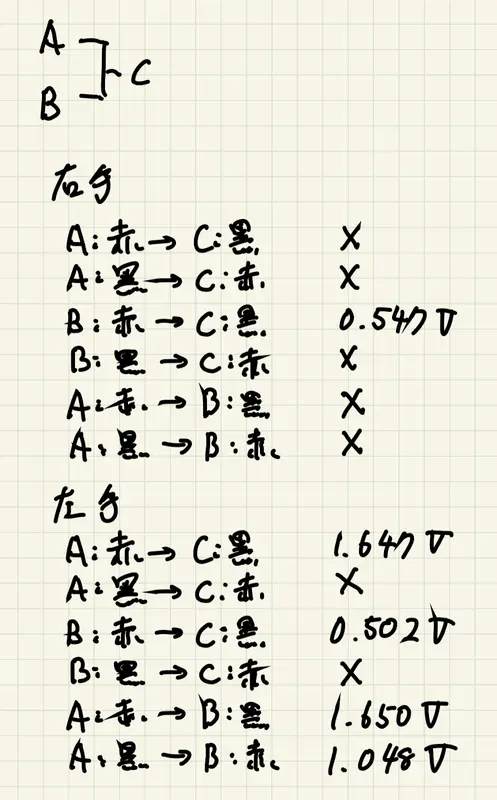 A
B
C
右手
A:赤→C:黒 X
A:黒→C:赤 X
B:赤→C:黒 0.547V
B:黒→C:赤 X
A:赤→B:黒 X
A:黒→B:赤 X
左手
A:赤→C:黒 1.647V
A:黒→C:赤 X
B:赤→C:黒 0.502V
B:黒→C:赤 X
A:赤→B:黒 1.650V
A:黒→B:赤 1.048V